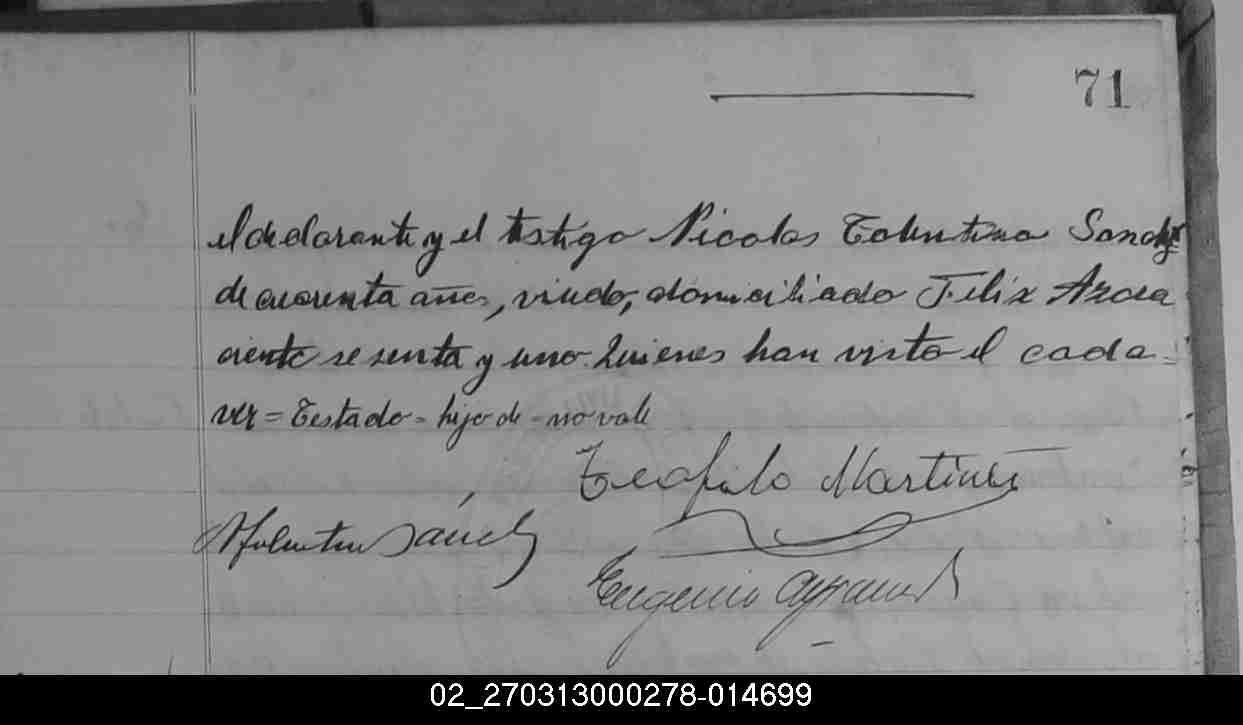 71
el declarante y el testigo Nicolas Tolentino Sanchez
de cuarenta años, viudo, domiciliado Felix Araoz
ciento sesenta y uno. Quienes han visto el cada-
ver = Testado - hijo de - no vale
Teofilo Martinez
N Tolentino Sánchez
Eugenio
02_270313000278-014699